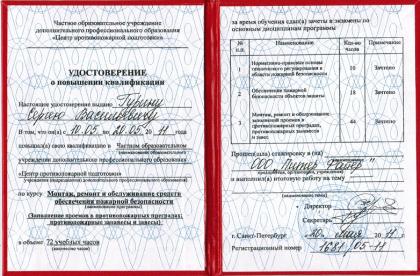 Частное образовательное учреждение
дополнительного профессионального образования
«Центр противопожарной подготовки»
УДОСТОВЕРЕНИЕ
о повышении квалификации
Настоящее удостоверение выдано Гурину
Сергею Васильевичу
В том, что он(а) с 10.05 по 20.05 2011 года
повышал(а) свою квалификацию в Частном образовательном
учреждении дополнительного профессионального образования
«Центр противопожарной подготовки»
по курсу Монтаж, ремонт и обслуживание средств
обеспечения пожарной безопасности
(Заполнение проемов в противопожарных преградах,
противопожарные занавесы и завесы)
в объеме 72 учебных часов
за время обучения сдал(а) зачеты и экзамены по
основным дисциплинам программы
№ п.п. Наименование Кол-во часов Примечание
1 Нормативно-правовые основы
технического регулирования в
области пожарной безопасности 10 Зачтено
2 Обеспечение пожарной
безопасности объектов защиты 18 Зачтено
3 Монтаж, ремонт и обслуживание
заполнений проемов в
противопожарных преградах,
противопожарных занавесов
и завес 44 Зачтено
Прошел(а) стажировку в (на)
ООО
и выполнил(а) итоговую работу на тему
Директор
Секретарь
г. Санкт-Петербург «20» мая 2011 г.
Регистрационный номер 1681/05-11